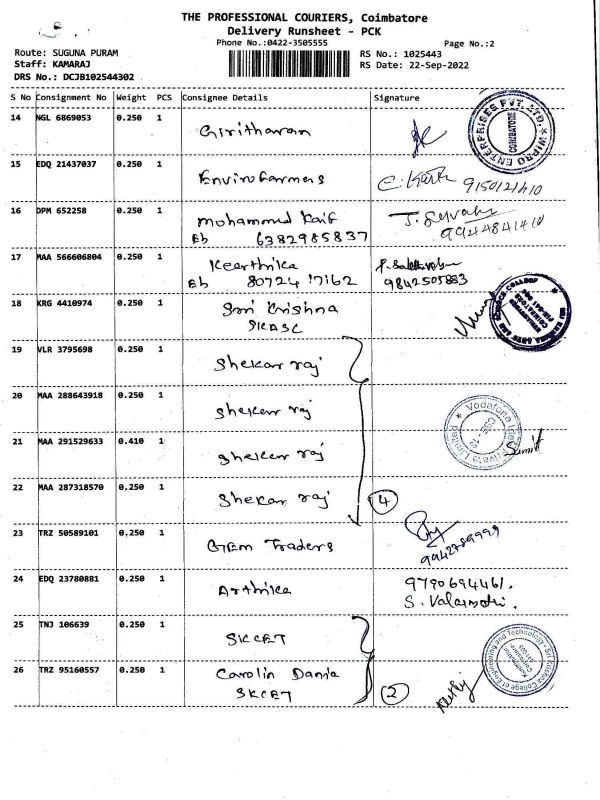 THE PROFESSIONAL COURIERS, Coimbatore
Delivery Runsheet - PCK
Phone No.:0422-3505555
Page No.:2
Route: SUGUNA PURAM
RS No.: 1025443
Staff: KAMARAJ
RS Date: 22-Sep-2022
DRS No.: DCJB102544302
S No Consignment No Weight PCS Consignee Details Signature
14 NGL 6869053 0.250 1 Giritharan
WIPRO ENTERPRISES PVT. LTD. COIMBATORE
15 EDQ 21437037 0.250 1 Envirofarmers 9150121410
16 DPM 652258 0.250 1 Mohammed Kaif
Eb 6382985837 9944841410
17 MAA 566606804 0.250 1 Keerthika
Eb 80724 17162 9842505883
18 KRG 4410974 0.250 1 Sri Krishna
SKASC
19 VLR 3795698 0.250 1 Shekar raj
20 MAA 288643918 0.250 1 Shekar raj
21 MAA 291529633 0.410 1 Shekar raj
Sumit
22 MAA 287318570 0.250 1 Shekar raj 4
23 TRZ 50589101 0.250 1 GEM Traders
9942789999
24 EDQ 23780881 0.250 1 Arthika 9790694461.
25 TNJ 106639 0.250 1 SKCET
26 TRZ 95160557 0.250 1 Carolin Dania
SKCET 2